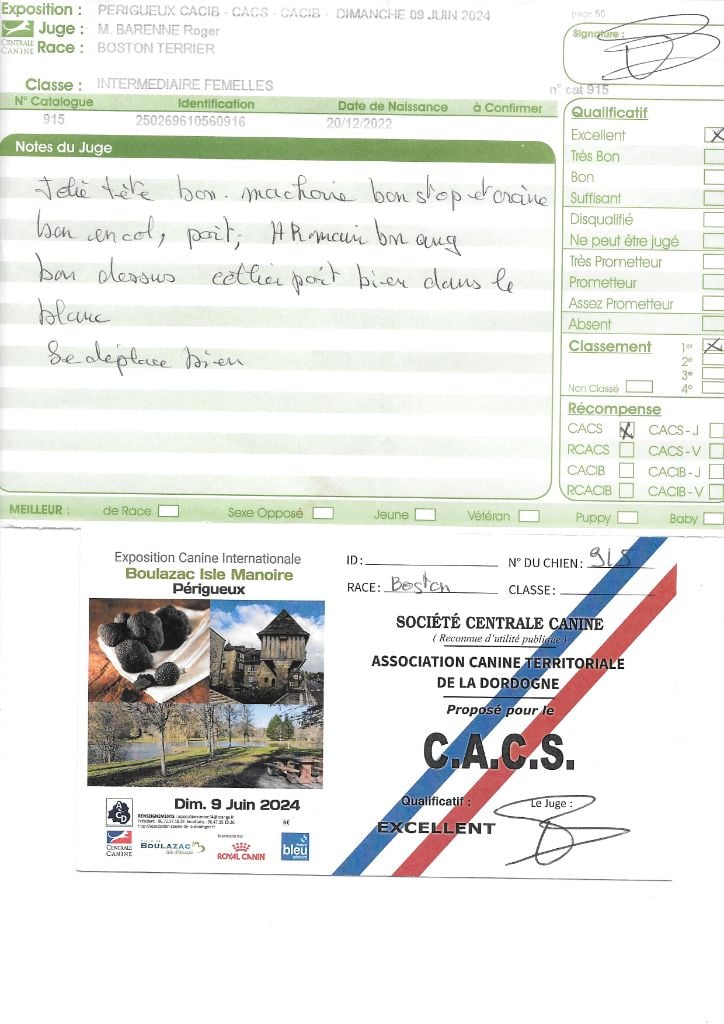 Exposition : PERIGUEUX CACIB - CACS - CACIB - DIMANCHE 09 JUIN 2024
page 90
Juge : M. BARENNE Roger
Signature :
CENTRALE CANINE
Race : BOSTON TERRIER
Classe : INTERMEDIAIRE FEMELLES
n° cat 915
N° Catalogue Identification Date de Naissance à Confirmer
915 250269610560916 20/12/2022
Notes du Juge
Jolie tête bon machoire bon stop et crâne
bon encol, poit,
bon dessus collier poit bien dans le
blanc
Se déplace bien
Qualificatif
Excellent X
Très Bon
Bon
Suffisant
Disqualifié
Ne peut être jugé
Très Prometteur
Prometteur
Assez Prometteur
Absent
Classement 1er X
2e
3e
Non Classé 4e
Récompense
CACS X CACS - J
RCACS CACS - V
CACIB CACIB - J
RCACIB CACIB - V
MEILLEUR : de Race Sexe Opposé Jeune Vétéran Puppy Baby
Exposition Canine Internationale
Boulazac Isle Manoire
Périgueux
Dim. 9 Juin 2024
RENSEIGNEMENTS :
6€
CENTRALE CANINE
BOULAZAC
ROYAL CANIN
bleu
ID: N° DU CHIEN: 915
RACE: Boston CLASSE:
SOCIÉTÉ CENTRALE CANINE
( Reconnue d'utilité publique )
ASSOCIATION CANINE TERRITORIALE
DE LA DORDOGNE
Proposé pour le
C.A.C.S.
Qualificatif : Le Juge :
EXCELLENT